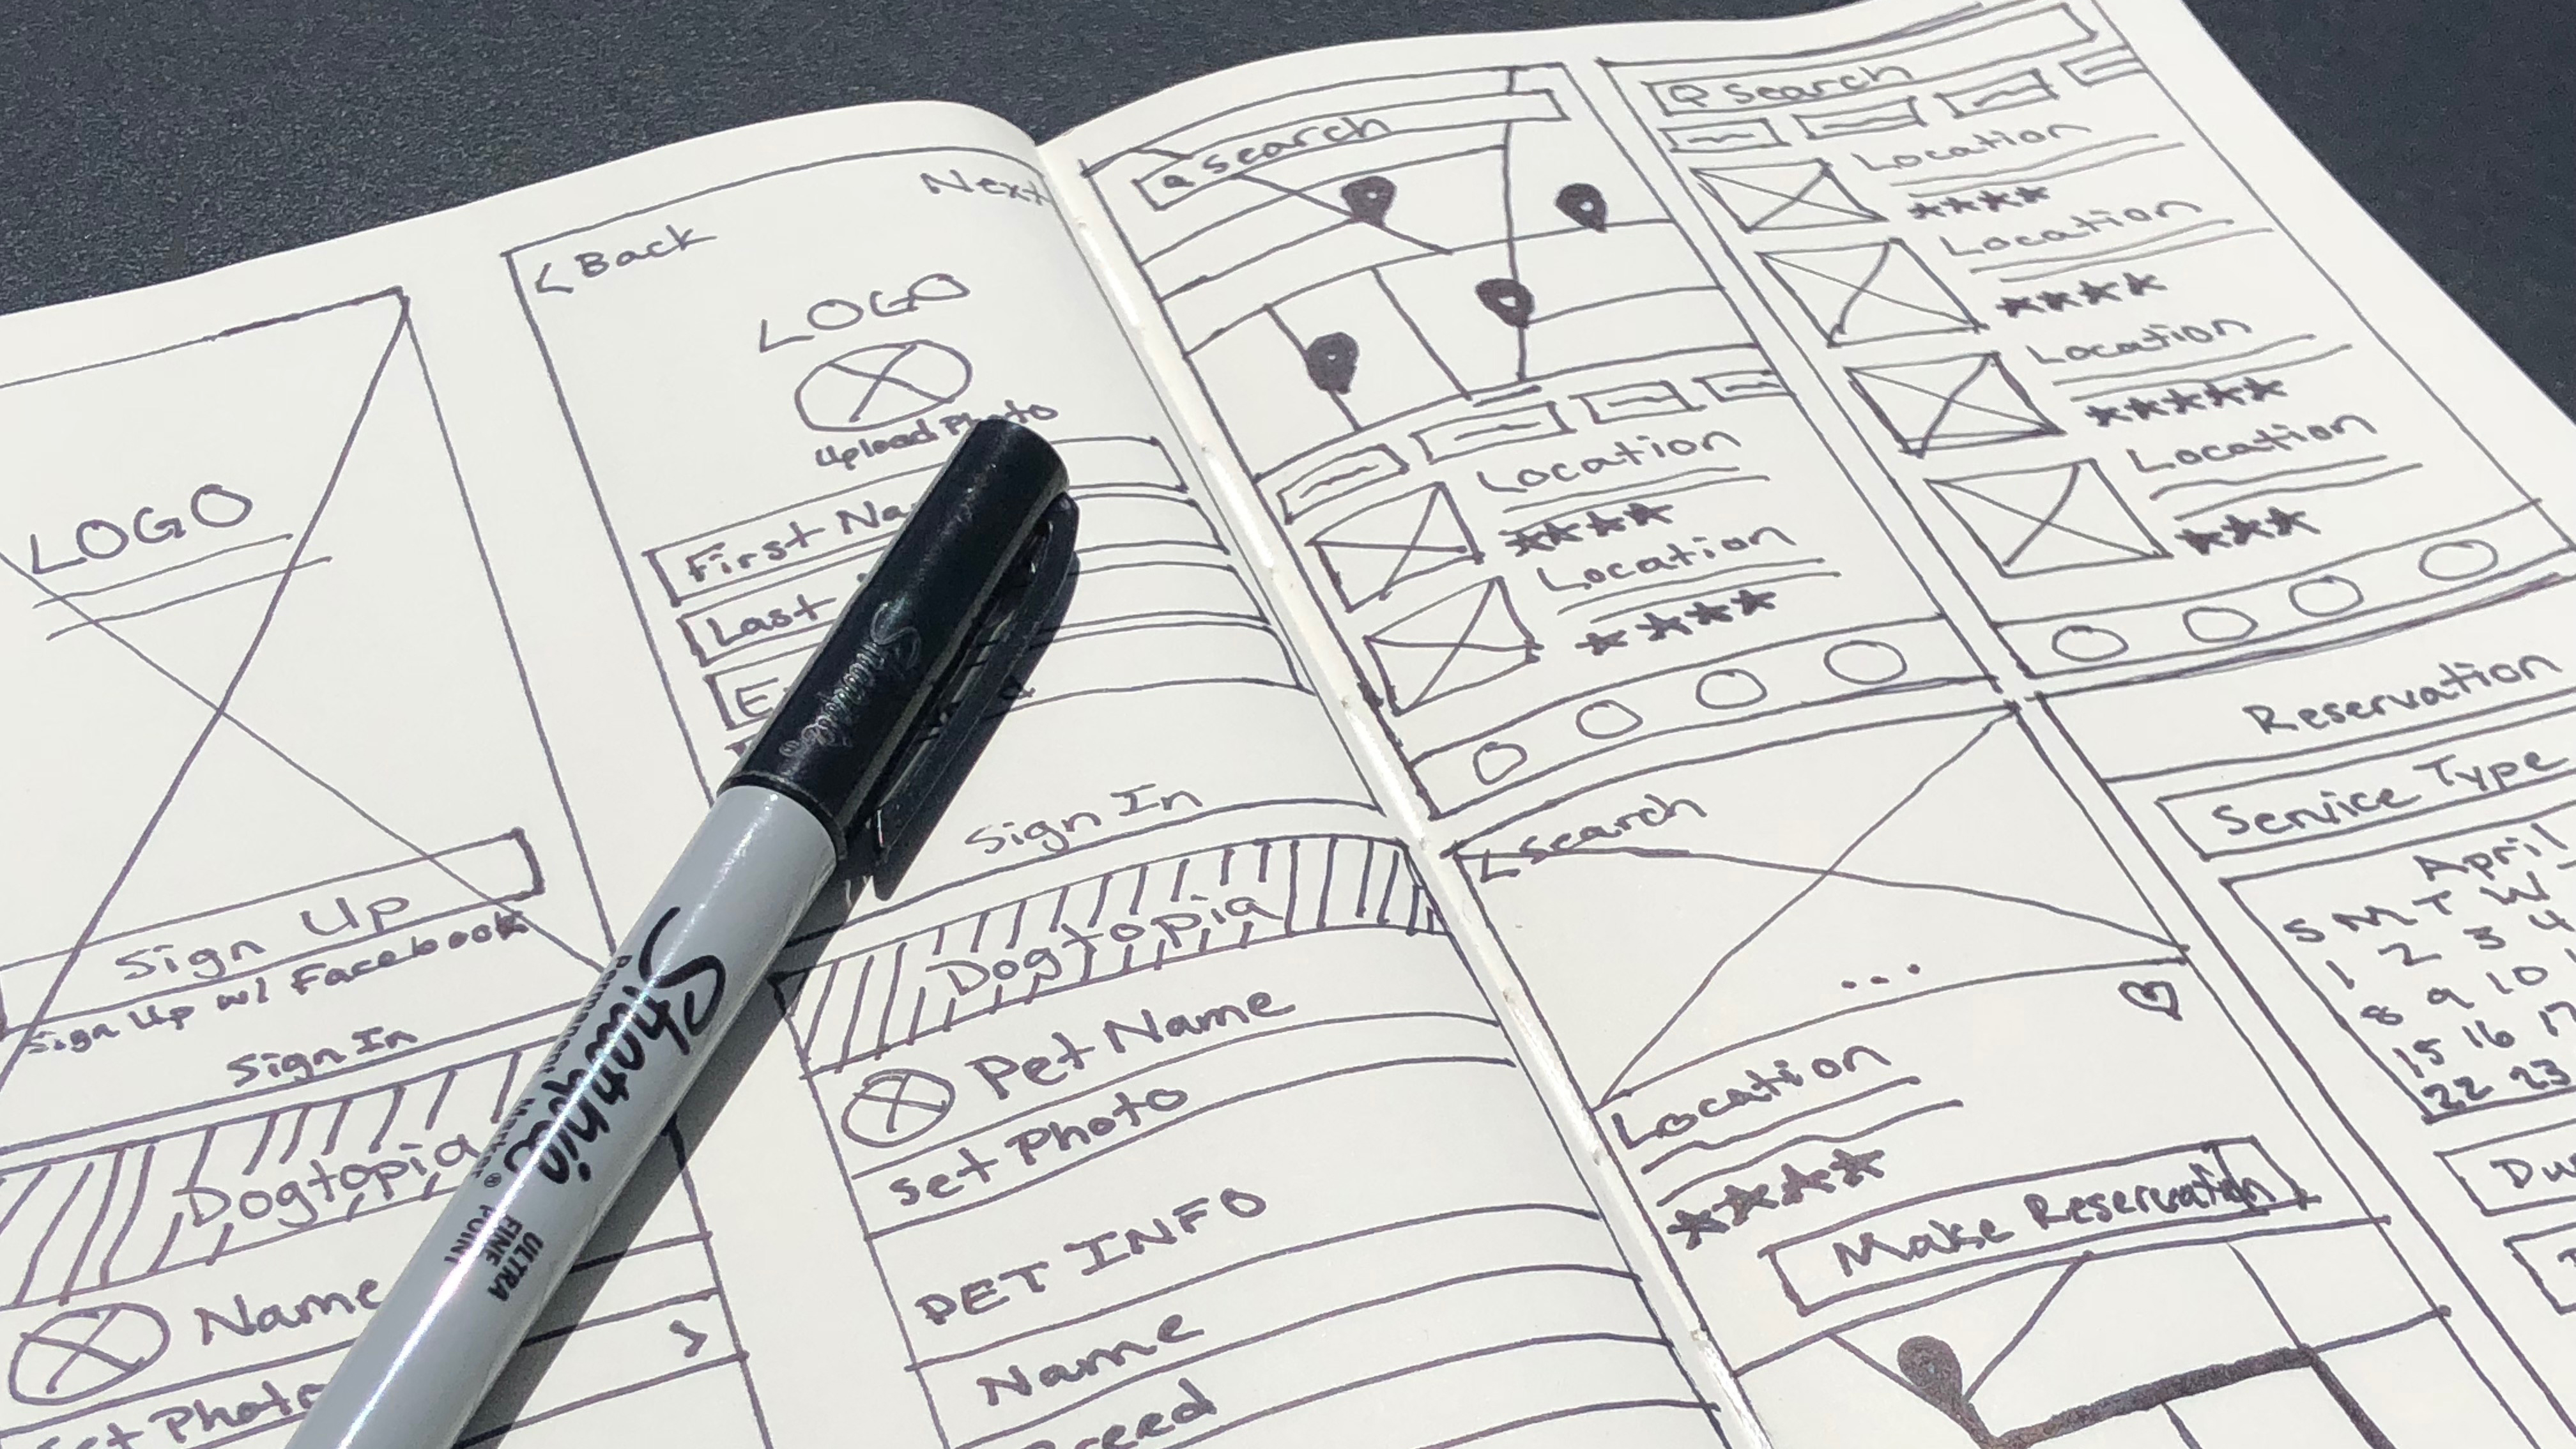 LOGO
Sign Up
Sign Up w/ Facebook
Sign In
Dogtopia
Name
Set Photo
< Back
Next
LOGO
Upload Photo
First Na
Last
E
Sign In
Dogtopia
Pet Name
Set Photo
PET INFO
Name
Breed
Sharpie
Sharpie
Permanent Marker
ULTRA
FINE
POINT
search
Location
Location
search
Location
Location
Location
Location
< search
...
Location
Make Reservation
Reservation
Service Type
April
S M T W
1 2 3 4
8 9 10
15 16 17
22 23
Du